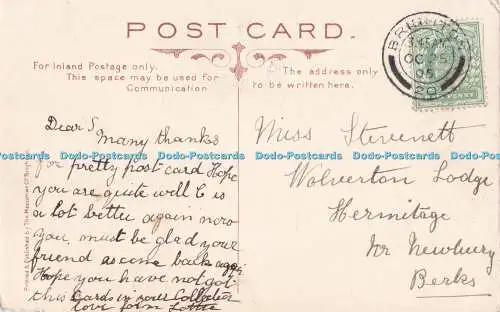 POST CARD.
For Inland Postage only.
This space may be used for
Communication
The address only
to be written here.
BRIGHTON
OC 25
05
Dear S
Many thanks
for pretty post card Hope
you are quite well C is
a lot better again now
you must be glad your
friend as come back again
Hope you have not got
this Cards in your Collection
love from Lottie
Miss Stevenett
Wolverton Lodge
Hermitage
Nr Newbury
Berks
Dodo-Postcards Dodo-Postcards Dodo-Postcards Dodo-Postcards Dodo-Postcards